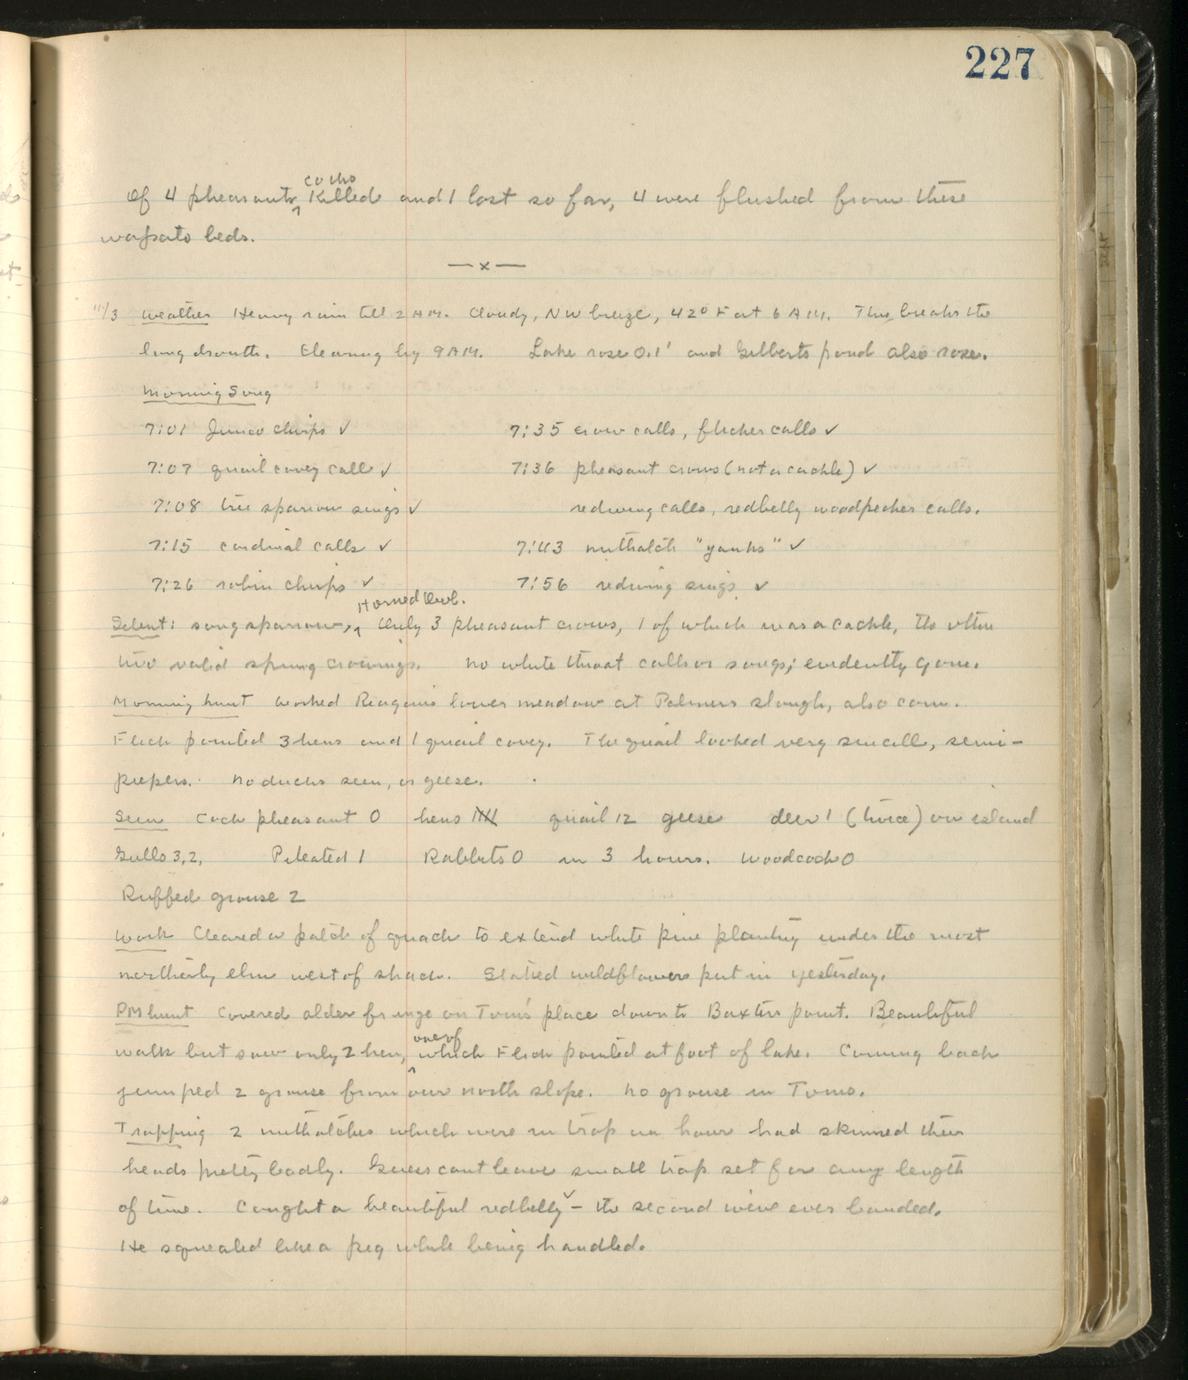 227
cocks
Of 4 pheasants killed and 1 lost so far, 4 were flushed from these
wapato beds.
— x —
11/3 Weather Heavy rain till 2 AM. Cloudy, NW breeze, 42° F at 6 AM. This breaks the
long drouth. Clearing by 9 AM. Lake rose 0.1' and Gilberts pond also rose.
Morning Song
7:01 Junco chirps ✓ 7:35 crow calls, flicker calls ✓
7:07 quail covey call ✓ 7:36 pheasant crows (not a cackle) ✓
7:08 tree sparrow sings ✓ redwing calls, redbelly woodpecker calls.
7:15 cardinal calls ✓ 7:43 nuthatch "yanks" ✓
7:26 robin chirps ✓ 7:56 redwing sings ✓
Horned Owl.
Silent: song sparrow, Only 3 pheasant crows, 1 of which was a cackle, the other
two valid spring crowings. No white throat calls or songs; evidently gone.
Morning hunt Worked Reagans lower meadow at Palmers slough, also corn.
Flick pointed 3 hens and 1 quail covey. The quail looked very small, semi-
peepers. No ducks seen, or geese.
Seen Cock pheasant 0 hens 𝍸 quail 12 geese deer 1 (twice) on island
Gulls 3, 2, Pileated 1 Rabbits 0 in 3 hours. Woodcock 0
Ruffed grouse 2
Work Cleared a patch of quack to extend white pine planting under the most
northerly elm west of shack. Staked wildflowers put in yesterday.
PM hunt Covered alder fringe on Tom's place down to Baxters point. Beautiful
one of
walk but saw only 2 hen, which Flick pointed at foot of lake. Coming back
jumped 2 grouse from our north slope. No grouse in Toms.
Trapping 2 nuthatches which were in trap an hour had skinned their
heads pretty badly. Guess cant leave small trap set for any length
of time. Caught a beautiful redbelly ✓ – the second weve ever banded.
He squealed like a pig while being handled.